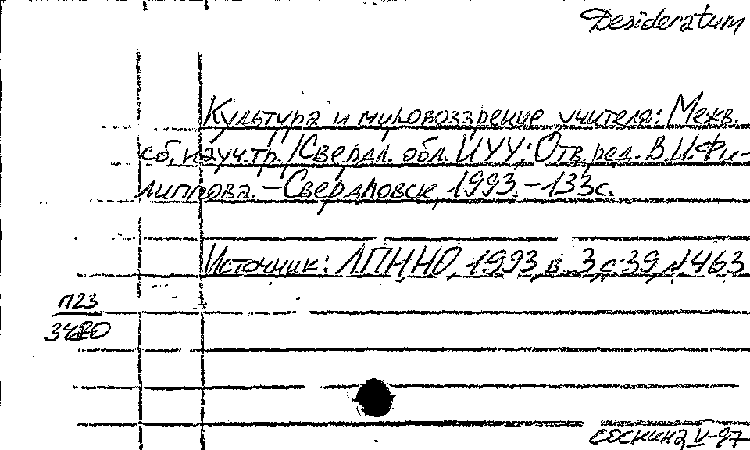 Desideratum
Культура и мировоззрение учителя: Межв.
сб. науч. тр. /Свердл. обл. ИУУ; Отв. ред. В.И. Фи-
липпова. – Свердловск, 1993. – 133с.
Источник: ЛПННО, 1993, в. 3, с. 39, 1463
П23
Соснина V-97